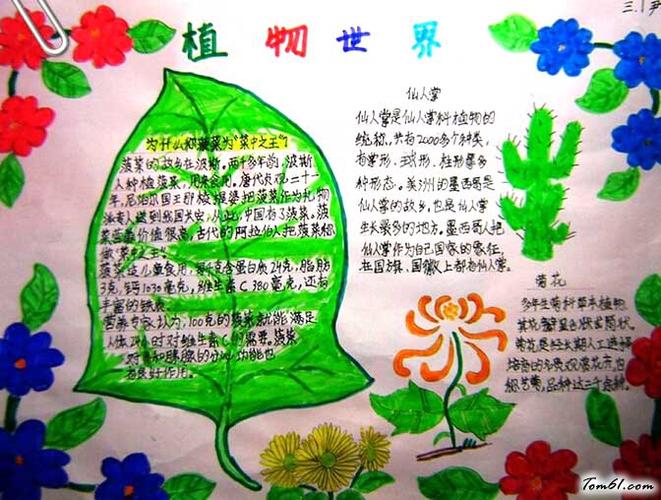 三.1 尹
植物世界
为什么称菠菜为"菜中之王"?
菠菜的故乡在波斯。两千多年前,波斯
人种植菠菜,用来食用。唐代贞观二十一
年,尼泊尔国王那棱提婆把菠菜作为礼物
派专人送到我国长安,从此,中国有了菠菜。菠
菜营养价值很高,古代的阿拉伯人把菠菜称
做"菜中之王"。
菠菜适儿童食用,每千克含蛋白质24克,脂肪
3克,钙1030毫克,维生素C 380毫克,还有
丰富的铁
营养专家认为,100克的菠菜就能满足
人体24小时对维生素C的需要。菠菜
对胃和胰腺的分泌功能也
有良好作用。
仙人掌
仙人掌是仙人掌科植物的
统称。共有2000多个种类,
有掌形、球形、柱形等多
种形态。美洲的墨西哥是
仙人掌的故乡,也是仙人掌
生长最多的地方。墨西哥人把
仙人掌作为自己国家的象征,
在国旗、国徽上都有仙人掌。
菊花
多年生菊科草本植物
其花瓣呈舌状或筒状。
菊花是经长期人工选择
培育的名贵观赏花卉,也
称艺菊,品种达三千余种。
Tom61.com